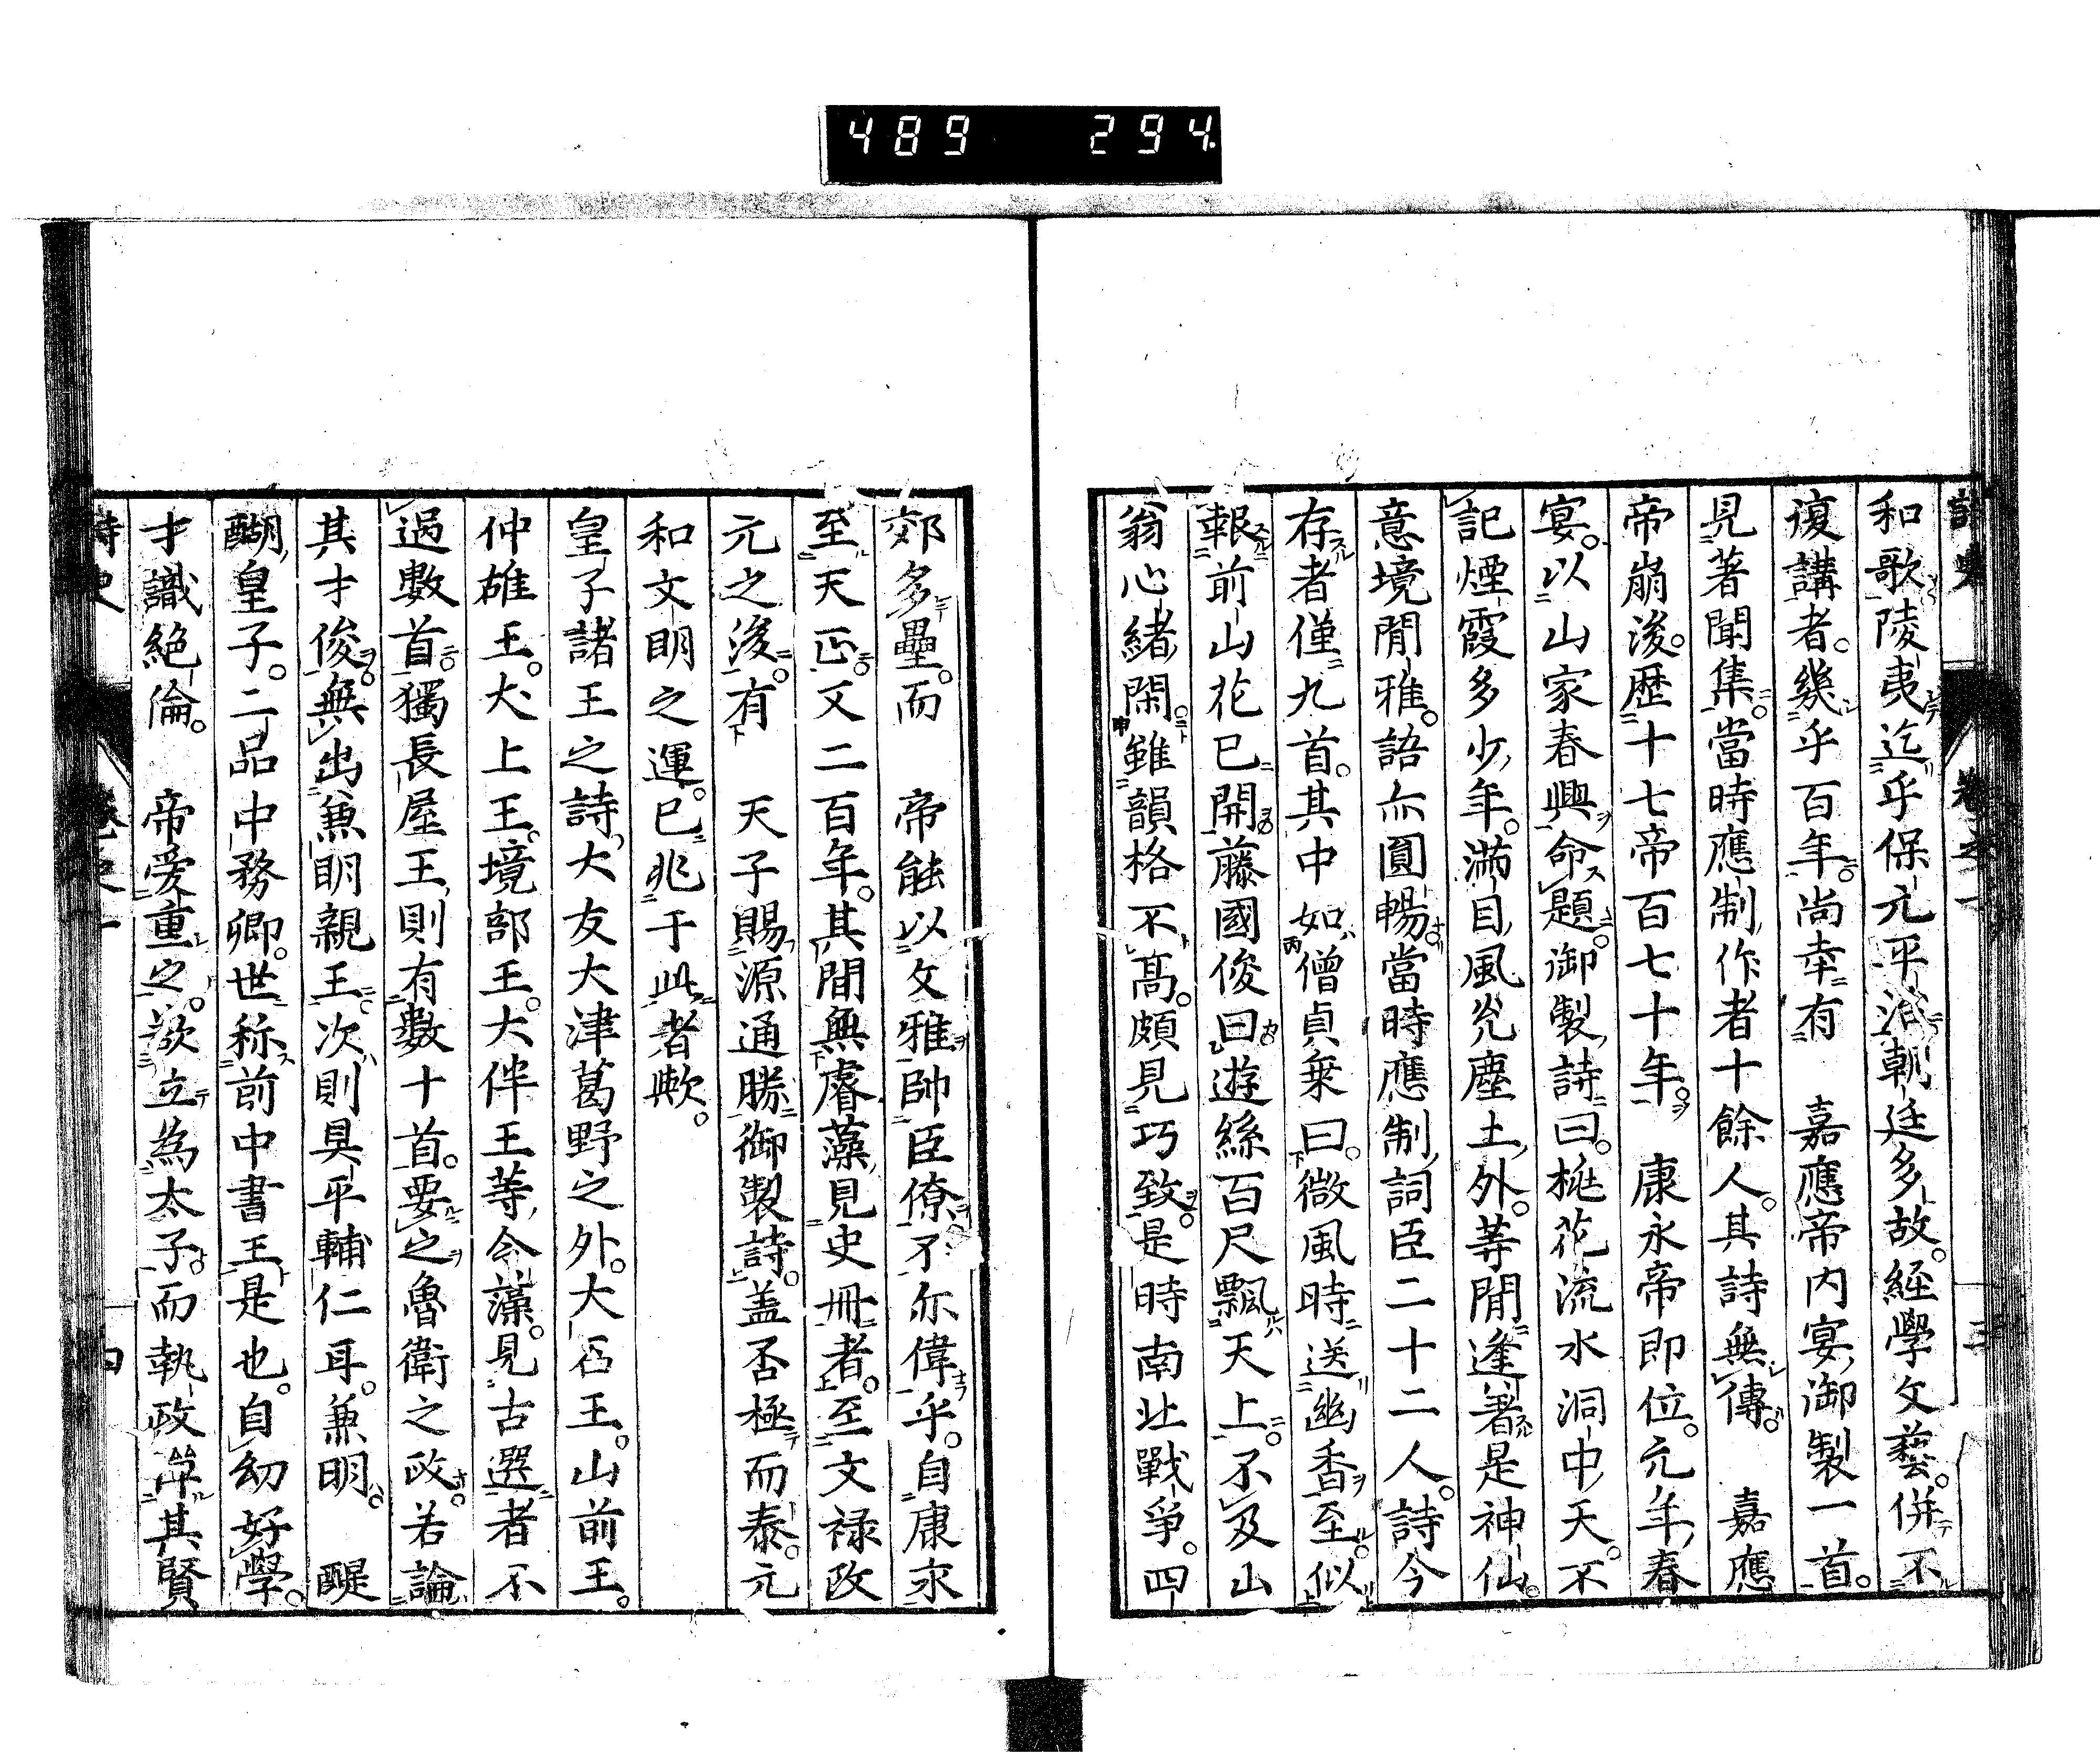 489 294
詩史 卷之一 三
和歌陵夷迄乎保元平治朝廷多故。經學文藝。併不
復講者。幾乎百年。尚幸有 嘉應帝内宴御製一首。
見著聞集。當時應制作者十餘人。其詩無傳。 嘉應
帝崩後。歴十七帝百七十年。 康永帝即位。元年春
宴。以山家春興命題。御製詩曰。桃花流水洞中天。不
記煙霞多少年。滿目風光塵土外。等閒逢著是神仙。
意境閒雅。語亦圓暢。當時應制詞臣二十二人。詩今
存者僅九首。其中如僧貞乗曰。微風時送幽香至。似
報前山花已開。藤國俊曰。遊絲百尺飄天上。不及山
翁心緒閑。雖韻格不高。頗見巧致。是時南北戰爭。四
郊多壘。而 帝能以文雅帥臣僚。不亦偉乎。自康永
至天正又二百年。其間無睿藻見史冊者。至文禄改
元之後。有 天子賜源通勝御製詩。盖否極而泰。元
和文明之運。已兆于此者歟。
皇子諸王之詩。大友大津葛野之外。大石王。山前王。
仲雄王。犬上王。境部王。大伴王等。今藻。見古選者不
過數首。獨長屋王。則有數十首。要之魯衛之政。若論
其才俊。無出兼明親王。次則具平輔仁耳。兼明。 醍
醐皇子。二品中務卿。世称前中書王是也。自幼好學。
才識絶倫。 帝愛重之。欲立為太子。而執政㠯其賢
詩史 卷之一 四